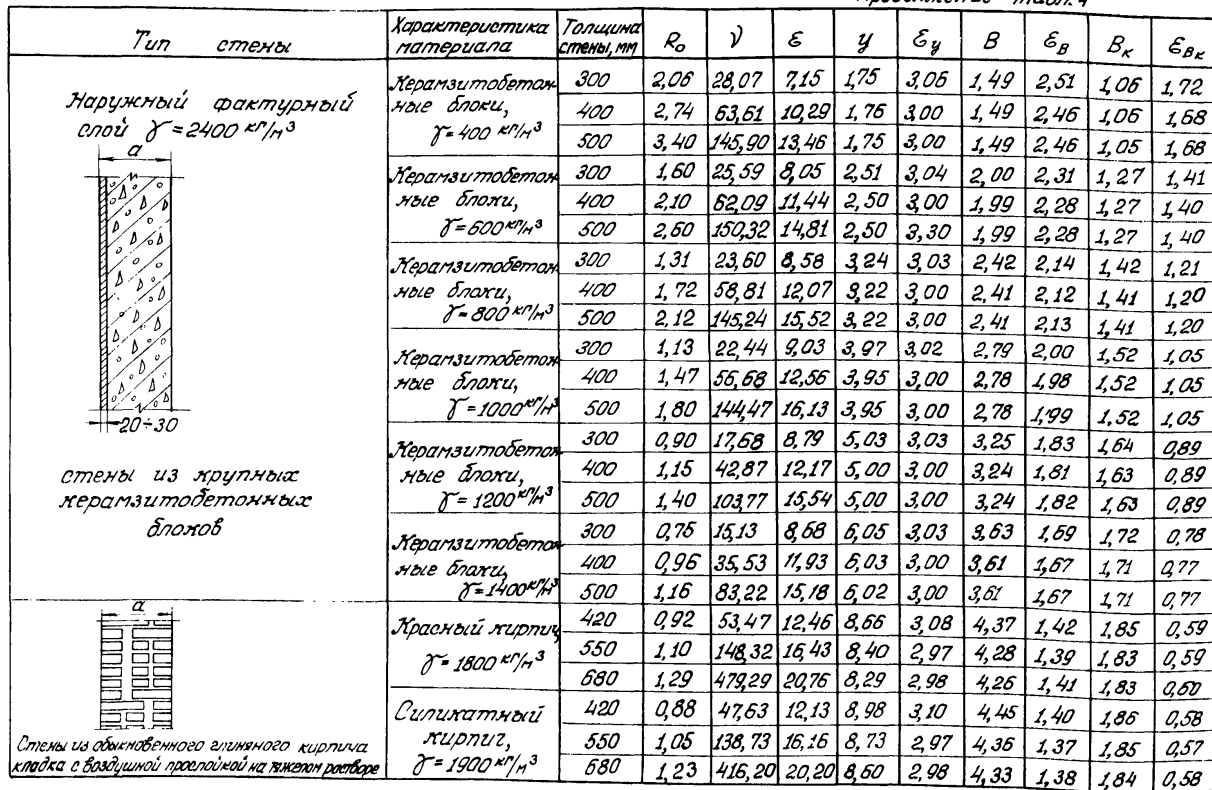 Продолжение табл. 4
Тип стены Характеристика материала Толщина стены, мм R₀ ν ε y ε_y B ε_B B_к ε_Bк
Наружный фактурный
слой γ = 2400 кг/м³
a
20÷30
стены из крупных
керамзитобетонных
блоков
Керамзитобетон-
ные блоки,
γ = 400 кг/м³
300 2,06 28,07 7,15 1,75 3,06 1,49 2,51 1,06 1,72
400 2,74 63,61 10,29 1,76 3,00 1,49 2,46 1,06 1,68
500 3,40 145,90 13,46 1,75 3,00 1,49 2,46 1,05 1,68
Керамзитобетон-
ные блоки,
γ = 600 кг/м³
300 1,60 25,59 8,05 2,51 3,04 2,00 2,31 1,27 1,41
400 2,10 62,09 11,44 2,50 3,00 1,99 2,28 1,27 1,40
500 2,60 150,32 14,81 2,50 3,30 1,99 2,28 1,27 1,40
Керамзитобетон-
ные блоки,
γ = 800 кг/м³
300 1,31 23,60 8,58 3,24 3,03 2,42 2,14 1,42 1,21
400 1,72 58,81 12,07 3,22 3,00 2,41 2,12 1,41 1,20
500 2,12 145,24 15,52 3,22 3,00 2,41 2,13 1,41 1,20
Керамзитобетон-
ные блоки,
γ = 1000 кг/м³
300 1,13 22,44 9,03 3,97 3,02 2,79 2,00 1,52 1,05
400 1,47 56,68 12,56 3,95 3,00 2,78 1,98 1,52 1,05
500 1,80 144,47 16,13 3,95 3,00 2,78 1,99 1,52 1,05
Керамзитобетон-
ные блоки,
γ = 1200 кг/м³
300 0,90 17,68 8,79 5,03 3,03 3,25 1,83 1,64 0,89
400 1,15 42,87 12,17 5,00 3,00 3,24 1,81 1,63 0,89
500 1,40 103,77 15,54 5,00 3,00 3,24 1,82 1,63 0,89
Керамзитобетон-
ные блоки,
γ = 1400 кг/м³
300 0,75 15,13 8,68 6,05 3,03 3,63 1,69 1,72 0,78
400 0,96 35,53 11,93 6,03 3,00 3,61 1,67 1,71 0,77
500 1,16 83,22 15,18 6,02 3,00 3,61 1,67 1,71 0,77
a
Стены из обыкновенного глиняного кирпича
кладка с воздушной прослойкой на тяжелом растворе
Красный кирпич
γ = 1800 кг/м³
420 0,92 53,47 12,46 8,66 3,08 4,37 1,42 1,85 0,59
550 1,10 148,32 16,43 8,40 2,97 4,28 1,39 1,83 0,59
680 1,29 479,29 20,76 8,29 2,98 4,26 1,41 1,83 0,60
Силикатный
кирпич,
γ = 1900 кг/м³
420 0,88 47,63 12,13 8,98 3,10 4,45 1,40 1,86 0,58
550 1,05 138,73 16,16 8,73 2,97 4,36 1,37 1,85 0,57
680 1,23 416,20 20,20 8,60 2,98 4,33 1,38 1,84 0,58